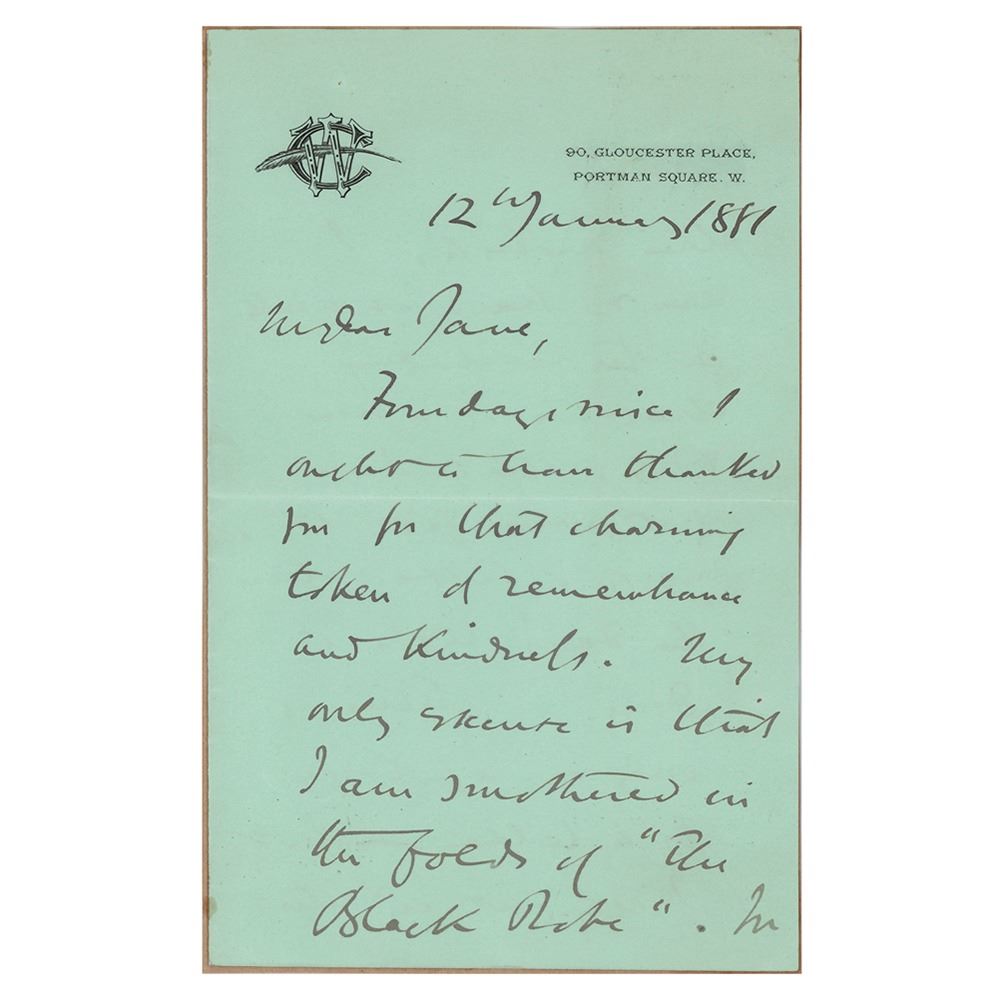 WC
90, GLOUCESTER PLACE,
PORTMAN SQUARE. W.
12th January 1881
My dear Jane,
Four days since I
ought to have thanked
you for that charming
token of remembrance
and kindness. My
only excuse is that
I am smothered in
the folds of "The
Black Robe". In